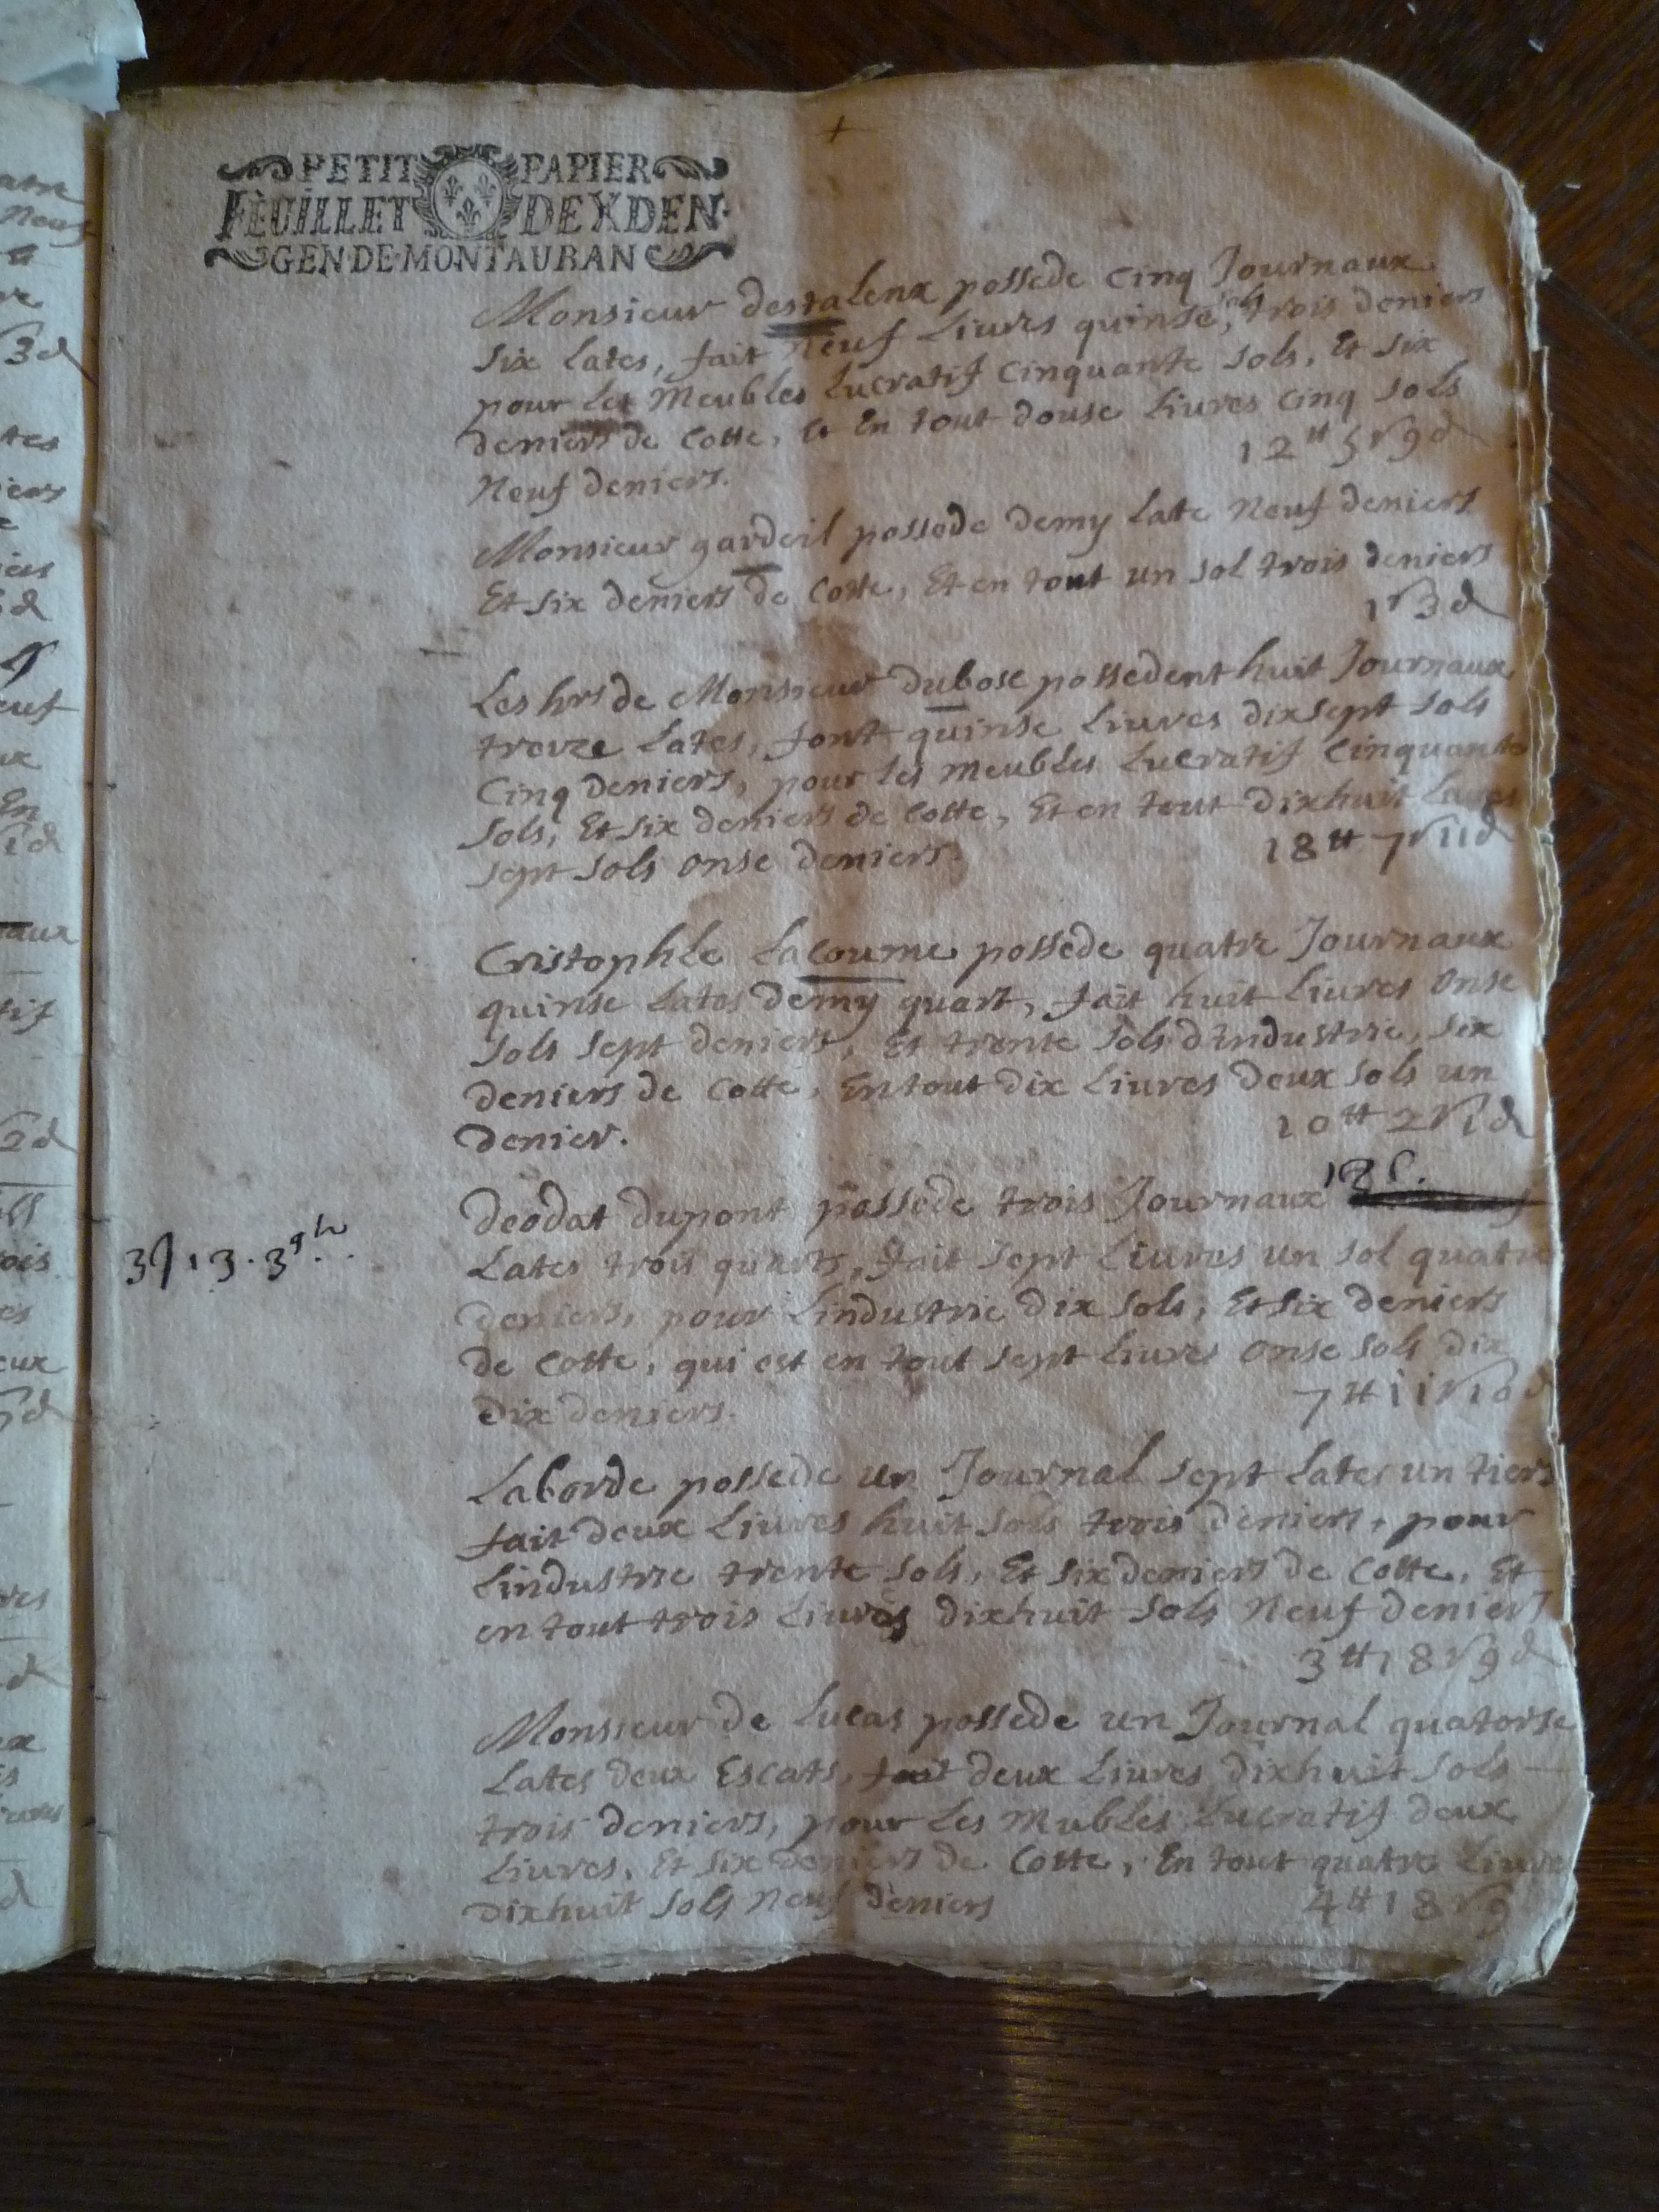 PETIT PAPIER
FEUILLET DE X DEN.
GEN DE MONTAUBAN
Monsieur destalenx possede cinq Journaux
six lates, fait neuf Liures quinse sols, trois deniers
pour les Meubles Lucratif cinquante sols, Et six
deniers de Cotte, Et En tout douse Liures cinq sols
Neuf deniers.
12 ₶ 5 s 9 d
Monsieur gardeil possede demy late Neuf deniers
Et six deniers de Cotte, Et en tout un sol trois deniers
1 s 3 d
Les hrs de Monsieur dubosc possedent huit Journaux
treize Lates, font quinse Liures dixsept sols
Cinq deniers, pour les meubles Lucratif Cinquante
sols, Et six deniers de Cotte, Et en tout dixhuit Liures
sept sols onse deniers.
18 ₶ 7 s 11 d
Cristophle Lacoume possede quatre Journaux
quinse Lates demy quart, fait huit Liures onse
sols sept deniers, Et trente sols dindustrie, six
deniers de Cotte, En tout dix Liures deux sols un
denier.
10 ₶ 2 s 1 d
Deodat dupont possede trois Journaux
3 J 13 . 3 qts
Lates trois quarts, fait sept Liures un sol quatre
deniers, pour Lindustrie dix sols, Et six deniers
de Cotte, qui est en tout sept Liures onse sols dix
dix deniers.
7 ₶ 11 s 10 d
Laborde possede un Journal sept Lates un tiers
fait deux Liures huit sols trois deniers, pour
Lindustrie trente sols, Et six deniers de Cotte, Et
en tout trois Liures dixhuit sols Neuf deniers
3 ₶ 18 s 9 d
Monsieur de Lucas possede un Journal quatorse
Lates deux Escats, fait deux Liures dixhuit sols
trois deniers, pour Les Mubles Lucratif deux
Liures, Et six deniers de Cotte, En tout quatre Liures
dixhuit sols Neuf deniers
4 ₶ 18 s 9